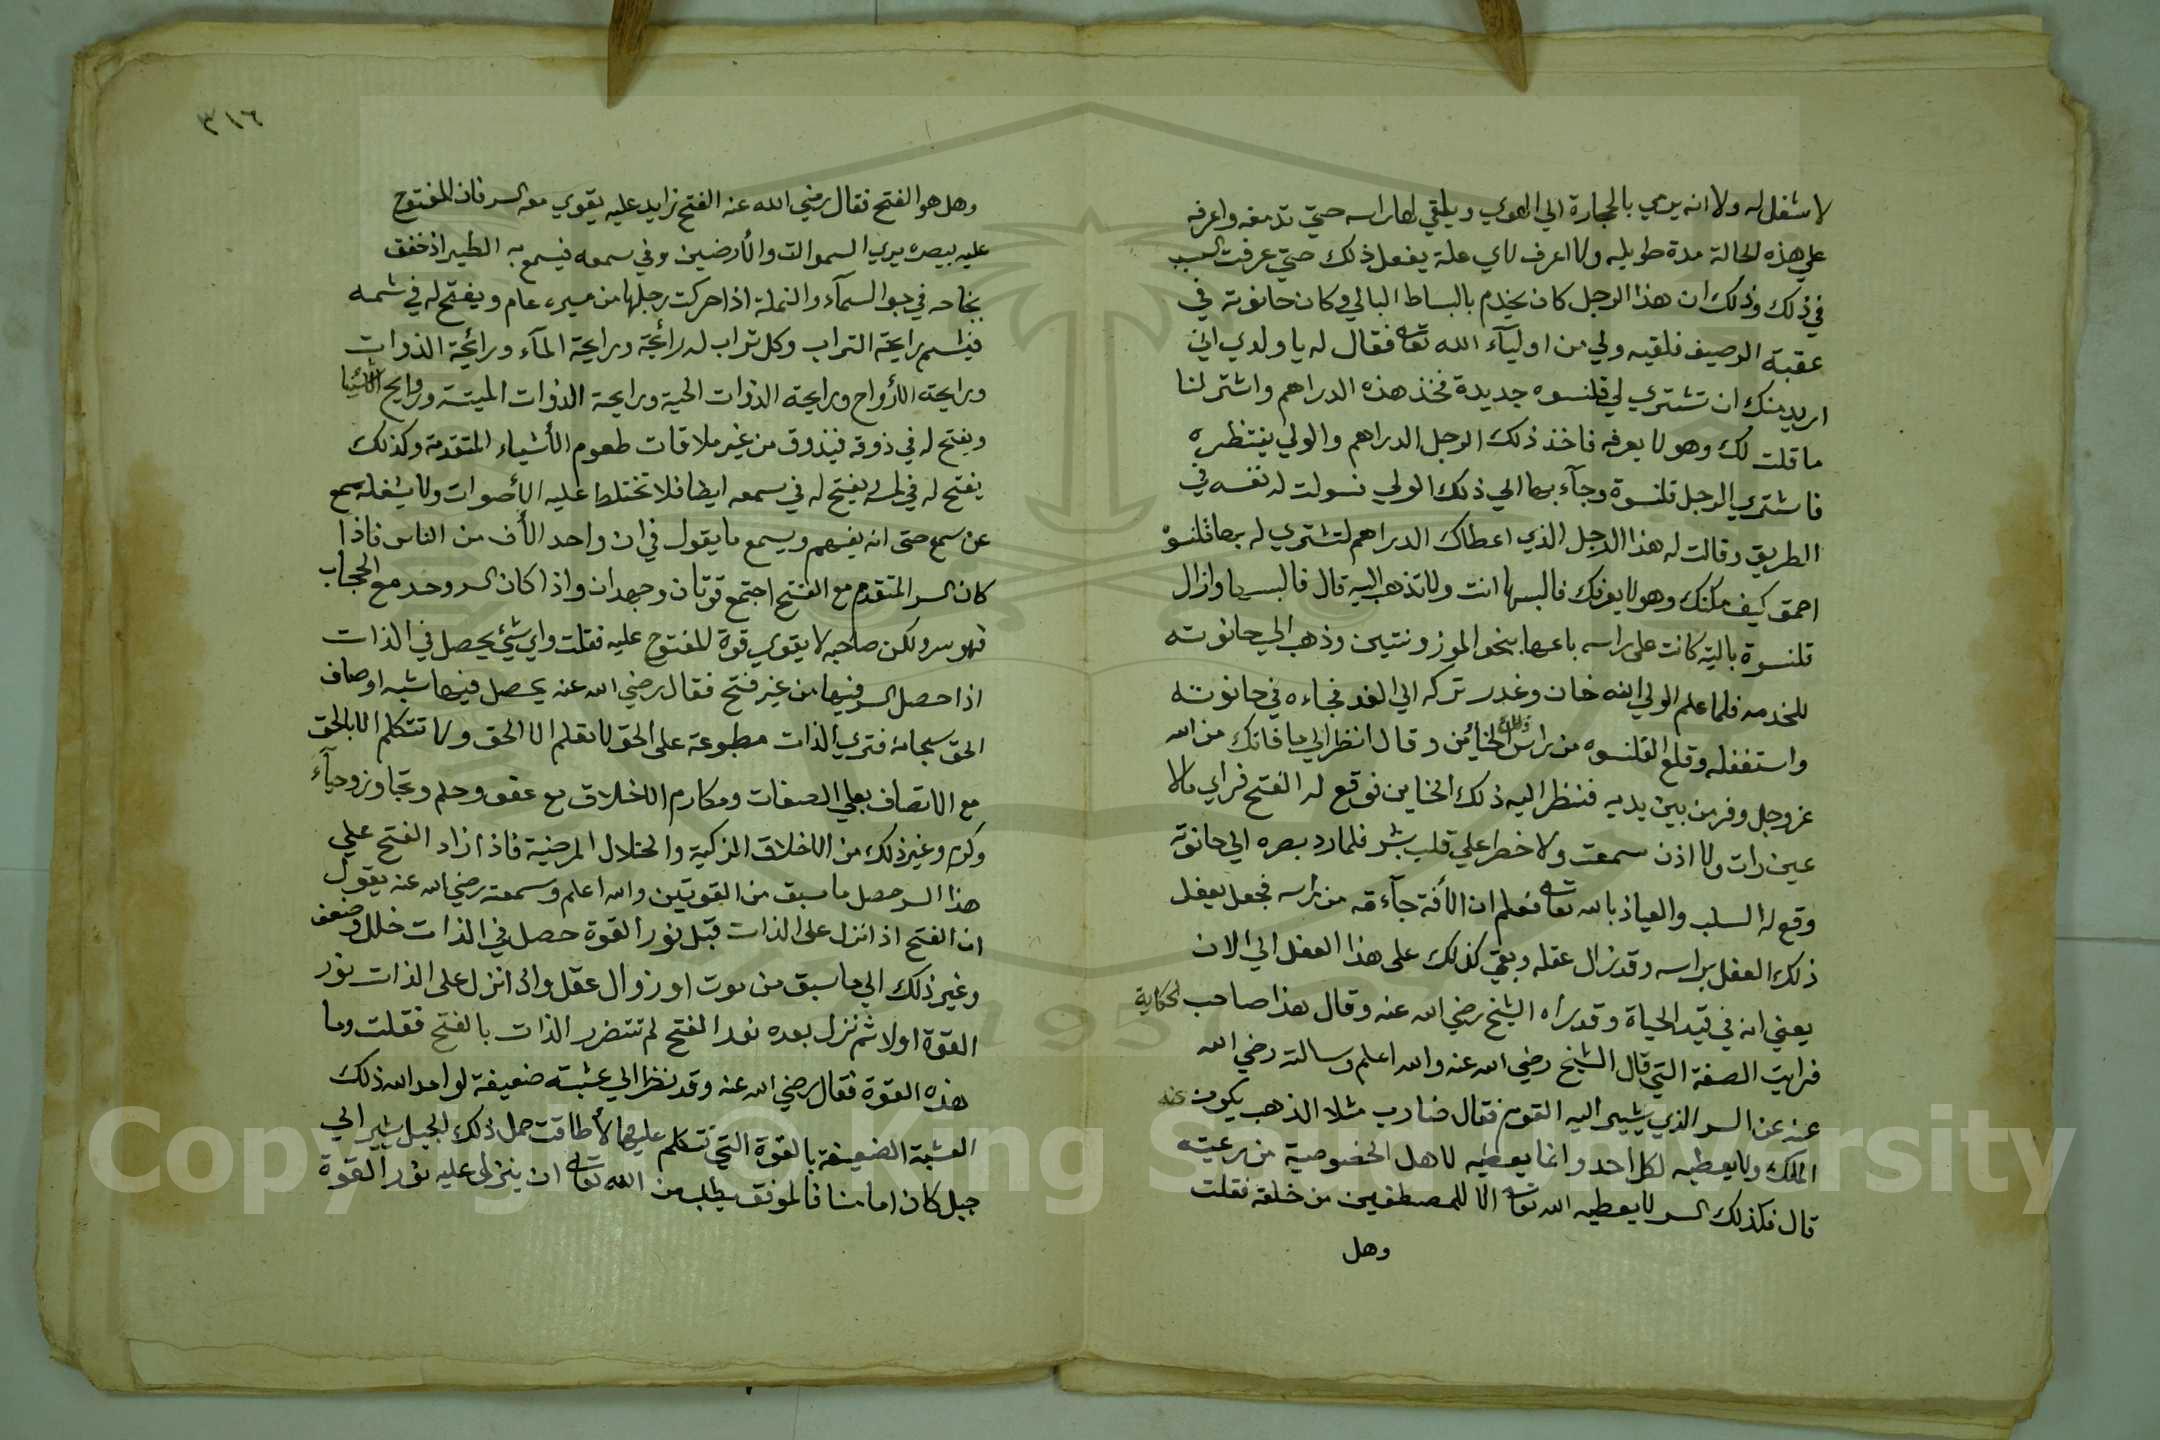 لا شغل له ولا انه يرمي بالحجارة الي الهوي ويلقي لها راسه حتي تدمغه واعرفه
علي هذه الحالة مدة طويله ولا اعرف لاي علة يفعل ذلك حتي عرفت السبب
في ذلك وذلك ان هذا الرجل كان يخدم بالبساط البالي وكان حانوته في
عقبة الرصيف فلقيه ولي من اوليآء الله تعا فقال له يا ولدي اني
اريد منك ان تشتري لي قلنسوه جديدة فخذ هذه الدراهم واشتر لنا
ما قلت لك وهو لا يعرفه فاخذ ذلك الرجل الدراهم والولي ينتظره
فاشتري الرجل قلنسوة وجآء بها الي ذلك الولي فسولت له نفسه في
الطريق وقالت له هذا الرجل الذي اعطاك الدراهم لتشتري له بها قلنسوة
احمق كيف مكنك وهو لا يعرفك فالبسها انت ولا تذهب اليه قال فالبسها وازال
قلنسوة بالية كانت على راسه باعها بنحو الموزونتين وذهب الي حانوته
للخدمه فلما علم الولي انه خان وغدر تركه الي الغد فجاءه في حانوته
واستغفله وقلع القلنسوه من راس ذلك الخائن وقال انظر الي ما فاتك من الله
عز وجل وفر من بين يديه فنظر اليه ذلك الخاين فوقع له الفتح فراي مالا
عين رات ولا اذن سمعت ولا خطر علي قلب بشر فلما رد بصره الي حانوته
وقع له السلب والعياذ بالله تعا فعلم ان الأفة جآءته من راسه فجعل يفعل
ذلك الفعل براسه وقد زال عقله وبقي كذلك على هذا الفعل الي الان
يعني انه في قيد الحياة وقد راه الشيخ رضي الله عنه وقال هذا صاحب الحكاية
فرايت الصفة التي قال الشيخ رضي الله عنه والله اعلم وسالته رضي الله
عنه عن السر الذي يشير اليه القوم فقال ضارب مثلا الذهب يكون عنه
الملك ولا يعطيه لكل احد وانما يعطيه لاهل الخصوصية من رعيته
قال فكذلك السر لا يعطيه الله تعا الا للمصطفين من خلقه فقلت
وهل
٣١٦
وهل هو الفتح فقال رضي الله عنه الفتح زايد عليه يقوي معه السر فان المفتوح
عليه ببصره يري السموات والأرضين وفي سمعه فيسمع به الطير اذ خفق
بجناحه في جو السمآء والنملة اذا حركت رجلها من مسيرة عام ويفتح له في شمه
فيشم رايحة التراب وكل تراب له رائحة ورايحة المآء ورائحة الذوات
ورايحة الأرواح ورايحة الذوات الحية ورايحة الذوات الميتة وروايح الأشيا
ويفتح له في ذوقه فيذوق من غير ملاقات طعوم الأشياء المتقدمة وكذلك
يفتح له في لمسه يفتح له في سمعه ايضا فلا تختلط عليه الأصوات ولا يشغله سمع
عن سمع حتى انه يفهم ويسمع ما يقول في ان واحد الأف من الناس فاذا
كان السر المتقدم مع الفتح اجتمع قوتان وجهدان واذا كان السر وحد مع الحجاب
فهو سر ولكن صاحبه لا يقوي قوة للمفتوح عليه فقلت واي شيء يحصل في الذات
اذا حصل السر فيها من غير فتح فقال رضي الله عنه يحصل فيها شبه اوصاف
الحق سبحانه فتري الذات مطبوعة على الحق لا تعلم الا الحق ولا تتكلم الا بالحق
مع الاتصاف بعلي الصفات ومكارم الاخلاق مع عفو وحلم وتجاوز وحيآء
وكرم وغير ذلك من الاخلاق الزكية والخلال المرضية فاذا زاد الفتح علي
هذا السر حصل ما سبق من القوتين والله اعلم وسمعته رضي الله عنه يقول
ان الفتح اذا نزل على الذات قبل نور القوة حصل في الذات خلل وضعف
وغير ذلك الي ما سبق من موت او زوال عقل واذا نزل على الذات نور
القوة اولا ثم نزل بعده نور الفتح لم تتضرر الذات بالفتح فقلت وما
هذه القوة فقال رضي الله عنه وقد نظر الي عشبة ضعيفة لو امد الله ذلك
العشبة الضعيفة بالقوة التي نتكلم عليها لأطاقت حمل ذلك الجبل يشير الي
جبل كان امامنا فالموفق يطلب من الله تعا ان ينزل عليه نور القوة
Copyright © King Saud University
1957